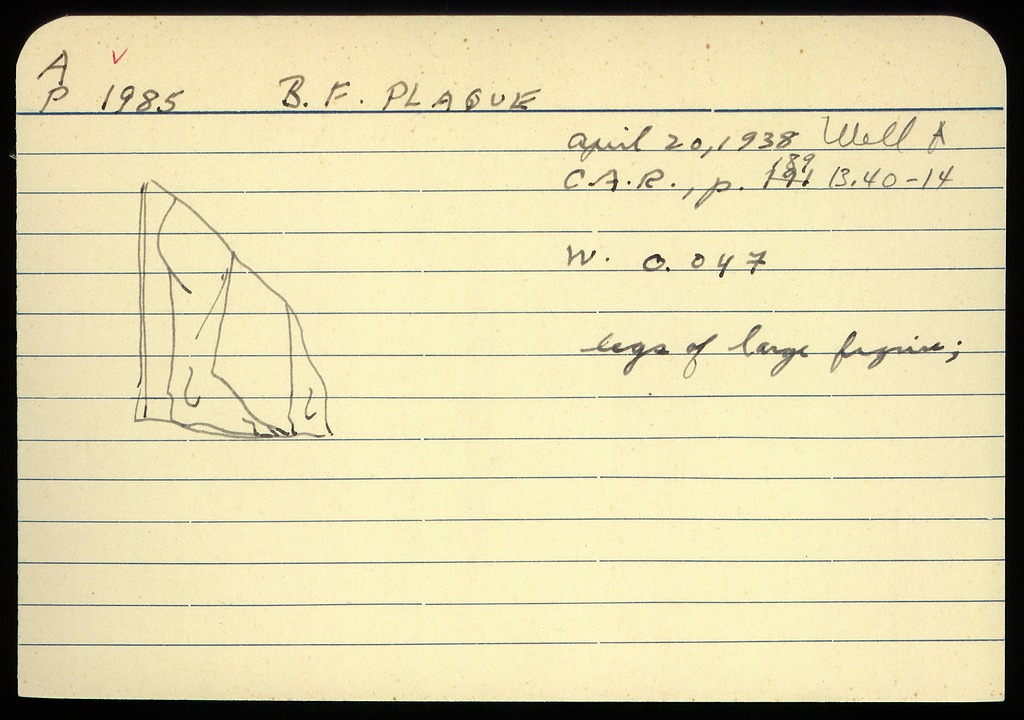 A
P 1985 B. F. PLAQUE
April 20, 1938 Well A
C.A.R., p. 191 189 B.40-14
W. 0.047
legs of large figure;